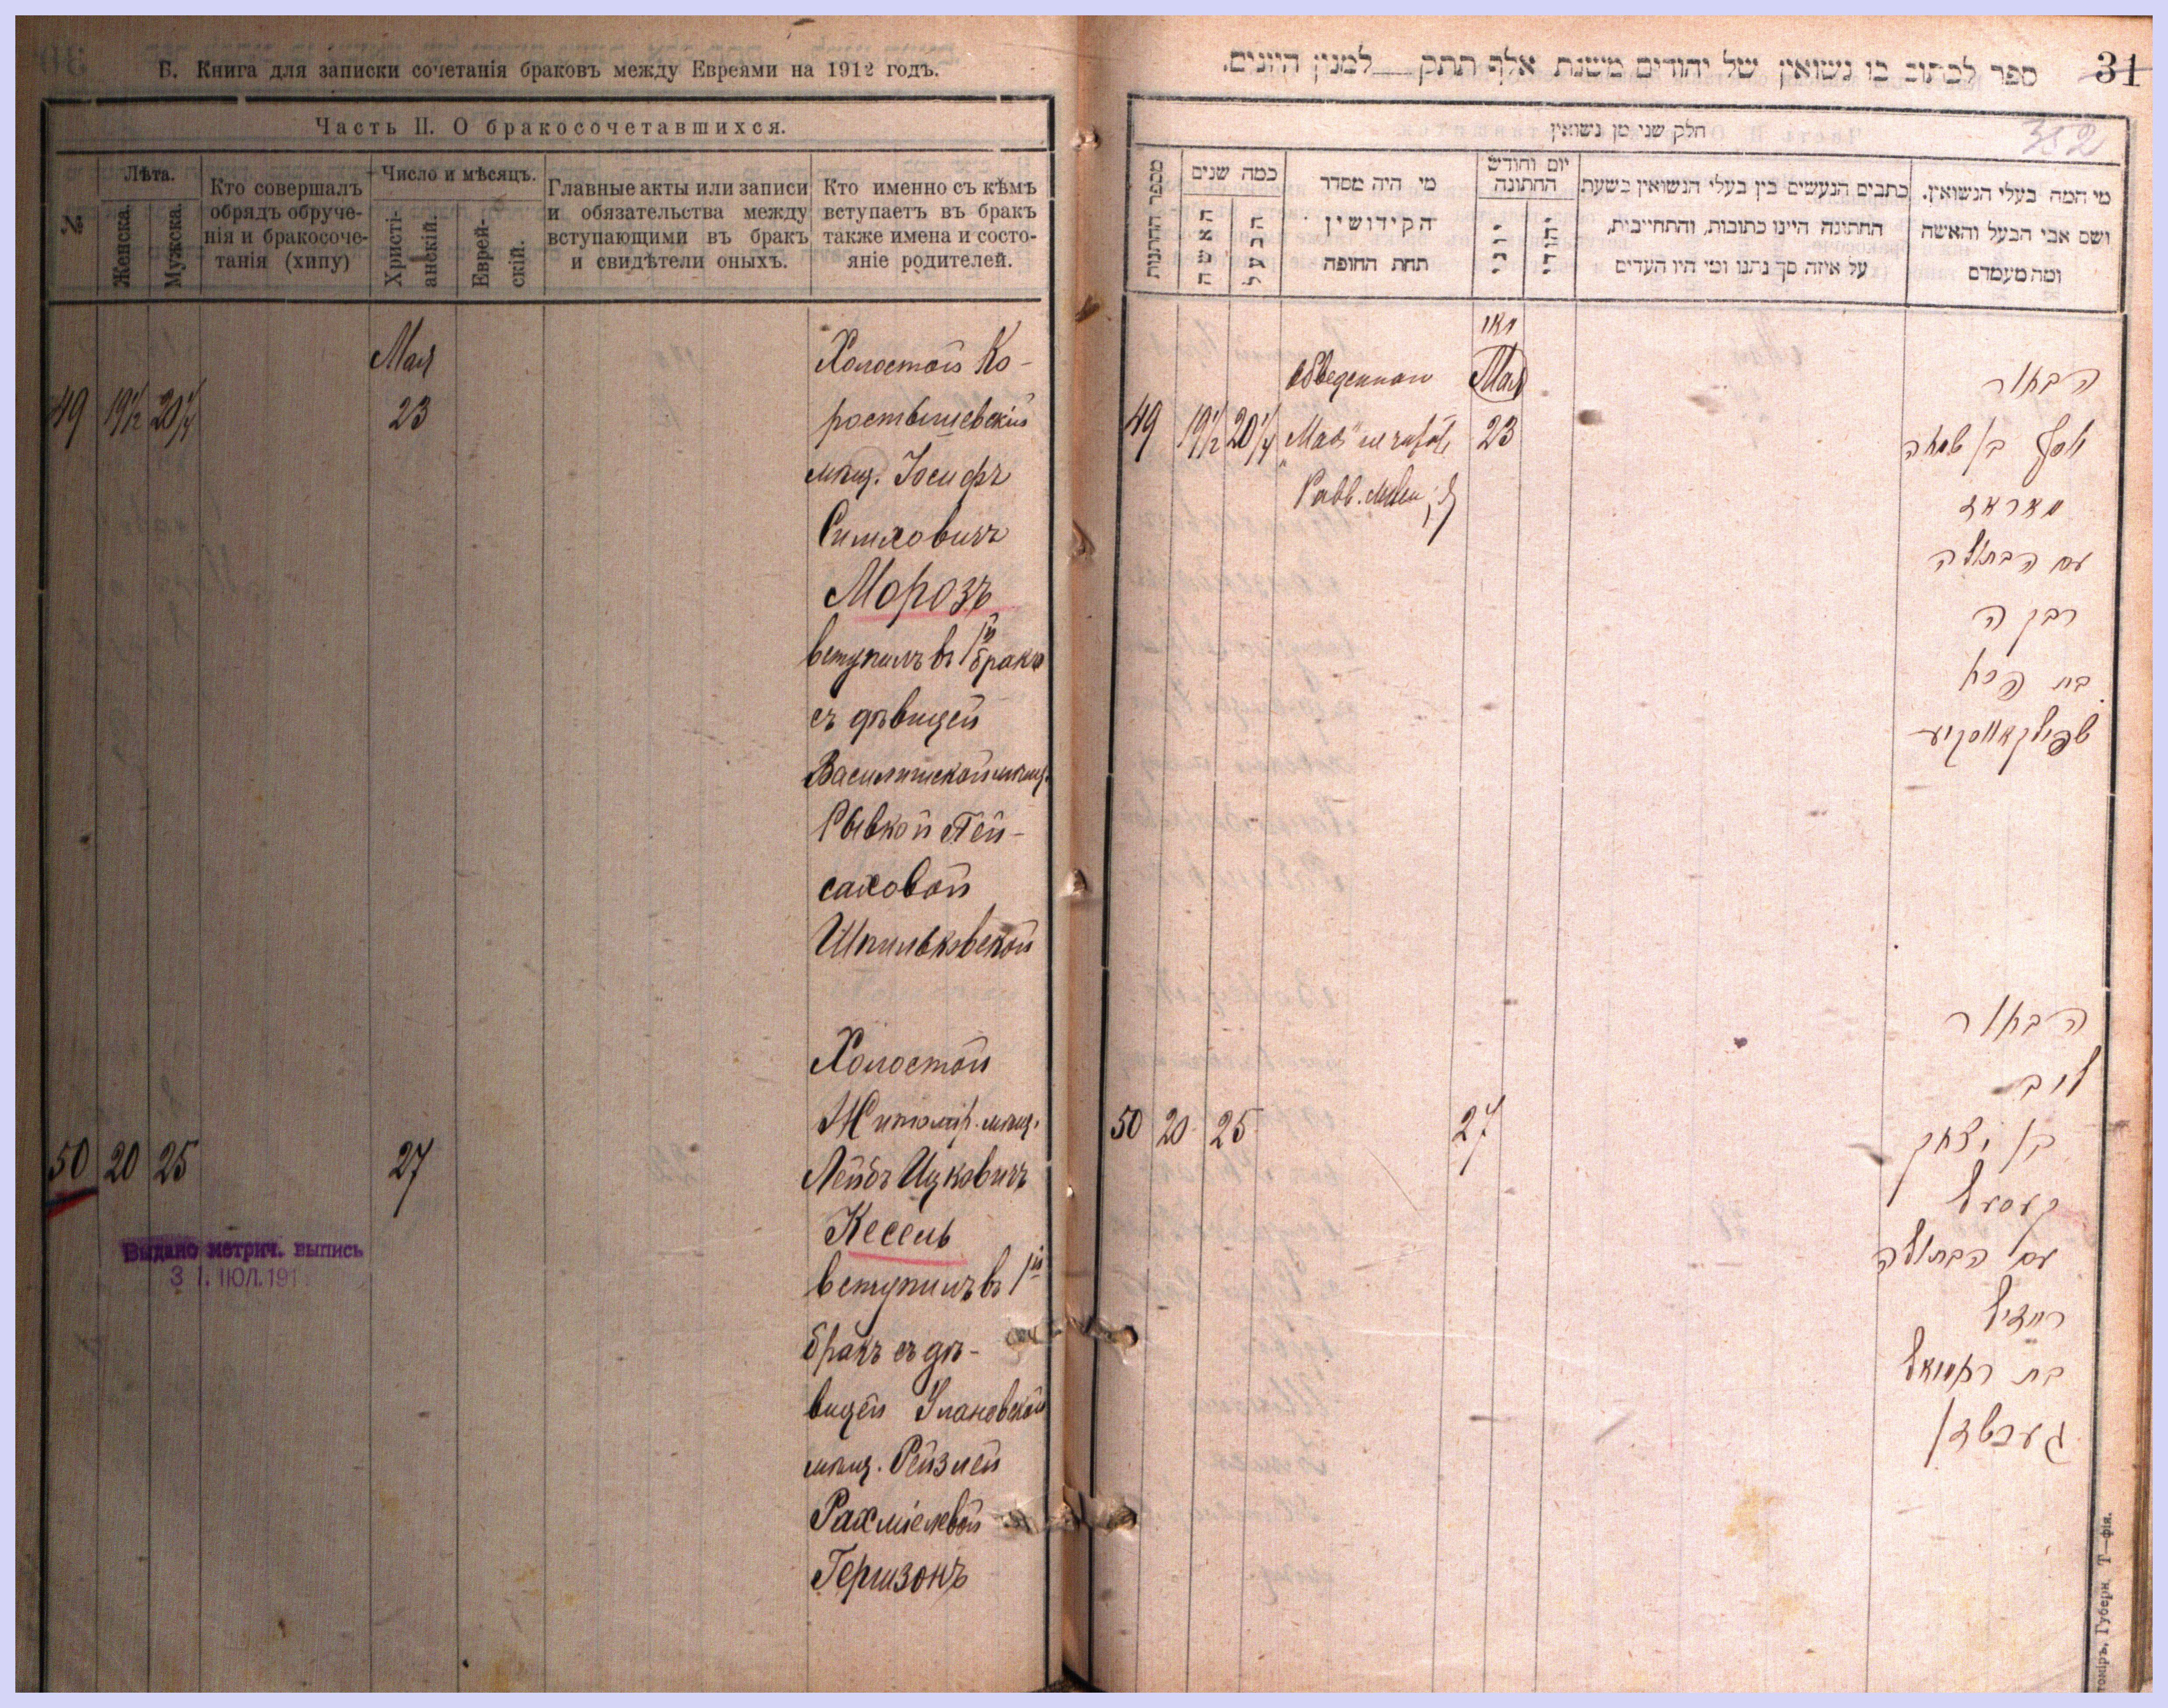 Б. Книга для записки сочетанія браковъ между Евреями на 1912 годъ.
Часть II. О бракосочетавшихся.
№
Лѣта.
Женска.
Мужска.
Кто совершалъ
обрядъ обруче-
нія и бракосоче-
танія (хипу)
Число и мѣсяцъ.
Христі-
анскій.
Еврей-
скій.
Главные акты или записи
и обязательства между
вступающими въ бракъ
и свидѣтели оныхъ.
Кто именно съ кѣмъ
вступаетъ въ бракъ
также имена и состо-
яніе родителей.
Мая
49 19½ 20¼ 23
Холостой Ко-
ростышевскій
мѣщ. Іосифъ
Симховичъ
Морозъ
вступилъ въ 1й бракъ
съ дѣвицей
Рывкой Пей-
саховой
Шпильковской
50 20 25 27
Холостой
Житомір. мѣщ.
Лейбъ Ицковичъ
Кесель
вступилъ въ 1й
бракъ съ дѣ-
вицей Улановской
мѣщ. Рейзлей
Рахміелевой
Гершзонъ
Выдано метрич. выпись
3 1. ІЮЛ. 191
ספר לכתוב בו נשואין של יהודים משנת אלף תתק למנין היונים.
31
352
חלק שני מן נשואין
מספר החתונות
כמה שנים
האשה
הבעל
מי היה מסדר
הקידושין
תחת החופה
יום וחודש
החתונה
יוני
יהודי
כתבים הנעשים בין בעלי הנשואין בשעת
החתונה היינו כתובות, והתחייבות,
על איזה סך נתנו ומי היו העדים
מי המה בעלי הנשואין.
ושם אבי הבעל והאשה
ומה מעמדם
מאי
обведенное Мая
49 19½ 20¼ "Мая" 23
Равв.
הבחור
יוסף בן שמחה
מאראז
עם הבתולה
רבקה
בת פסח
שפילקאווסקיע
50 20 25 27
הבחור
ליב
בן יצחק
קעסעל
עם הבתולה
רייזיל
בת רחמיאל
גערשזון
томіръ, Губерн. Т—фія.